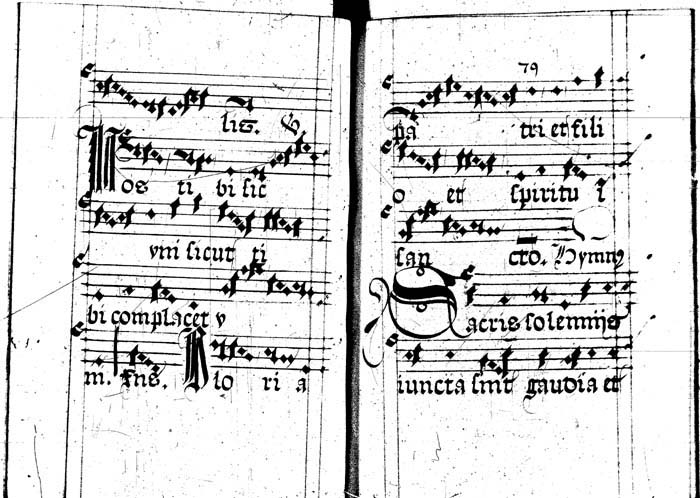 lis.
Nos ti bi sic
vni sicut ti
bi complacet v
m. Ens. Glo ri a
79
pa tri et fili
o et spiritu i
san cto. Hymn9
Sacris solemnijs
iuncta sint gaudia et